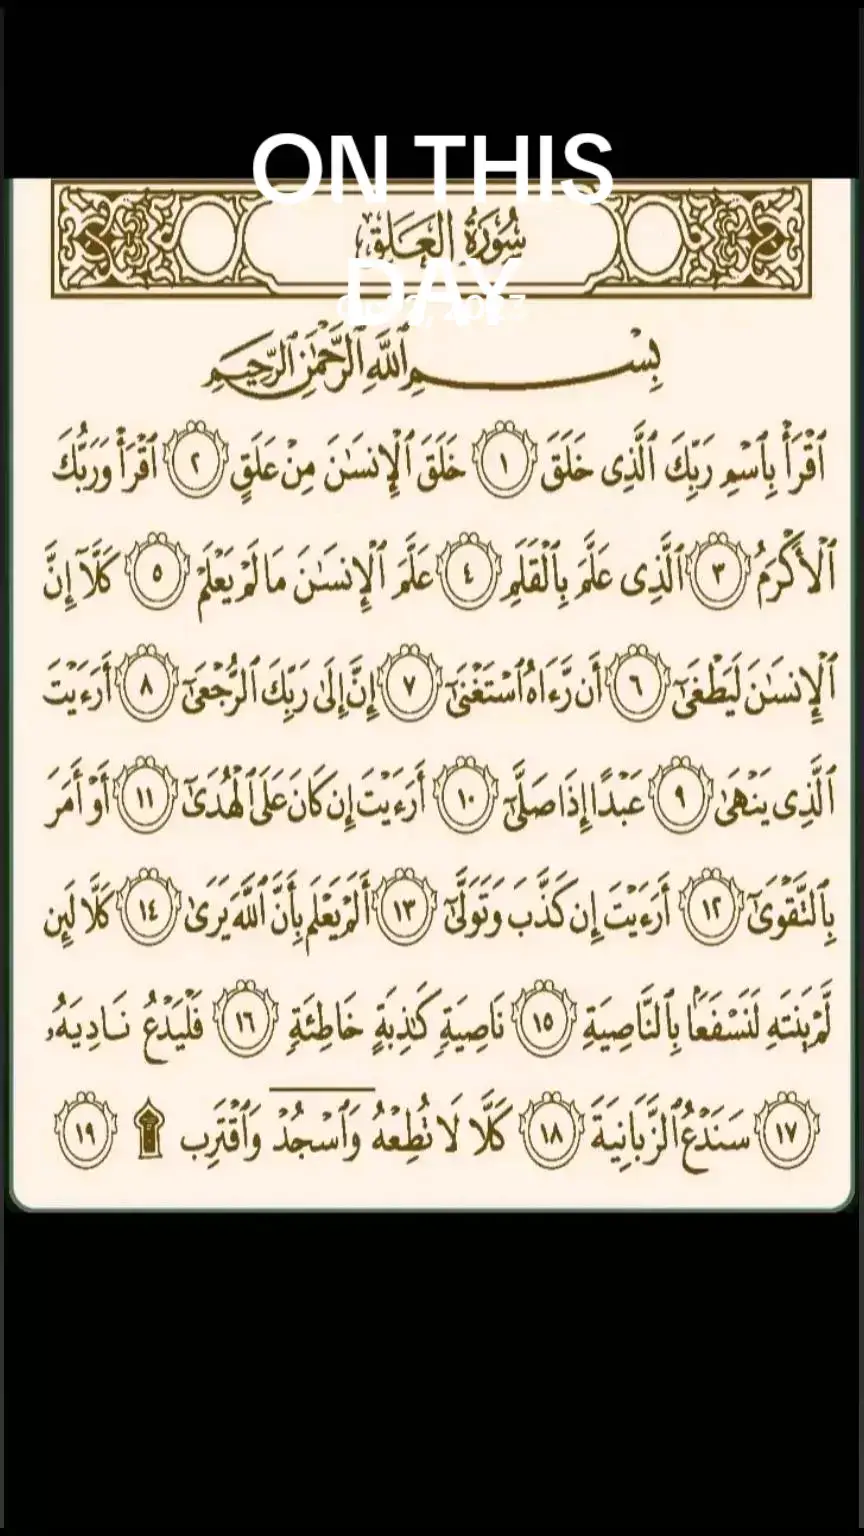 ON THIS
سُورَةُ العَلَقِ
DAY
بِسْمِ ٱللَّهِ ٱلرَّحْمَٰنِ ٱلرَّحِيمِ
ٱقْرَأْ بِٱسْمِ رَبِّكَ ٱلَّذِى خَلَقَ ١ خَلَقَ ٱلْإِنسَٰنَ مِنْ عَلَقٍ ٢ ٱقْرَأْ وَرَبُّكَ
ٱلْأَكْرَمُ ٣ ٱلَّذِى عَلَّمَ بِٱلْقَلَمِ ٤ عَلَّمَ ٱلْإِنسَٰنَ مَا لَمْ يَعْلَمْ ٥ كَلَّآ إِنَّ
ٱلْإِنسَٰنَ لَيَطْغَىٰٓ ٦ أَن رَّءَاهُ ٱسْتَغْنَىٰٓ ٧ إِنَّ إِلَىٰ رَبِّكَ ٱلرُّجْعَىٰٓ ٨ أَرَءَيْتَ
ٱلَّذِى يَنْهَىٰ ٩ عَبْدًا إِذَا صَلَّىٰٓ ١٠ أَرَءَيْتَ إِن كَانَ عَلَى ٱلْهُدَىٰٓ ١١ أَوْ أَمَرَ
بِٱلتَّقْوَىٰٓ ١٢ أَرَءَيْتَ إِن كَذَّبَ وَتَوَلَّىٰٓ ١٣ أَلَمْ يَعْلَم بِأَنَّ ٱللَّهَ يَرَىٰ ١٤ كَلَّا لَئِن
لَّمْ يَنتَهِ لَنَسْفَعًۢا بِٱلنَّاصِيَةِ ١٥ نَاصِيَةٍ كَٰذِبَةٍ خَاطِئَةٍ ١٦ فَلْيَدْعُ نَادِيَهُۥ
١٧ سَنَدْعُ ٱلزَّبَانِيَةَ ١٨ كَلَّا لَا تُطِعْهُ وَٱسْجُدْ وَٱقْتَرِب ۩ ١٩